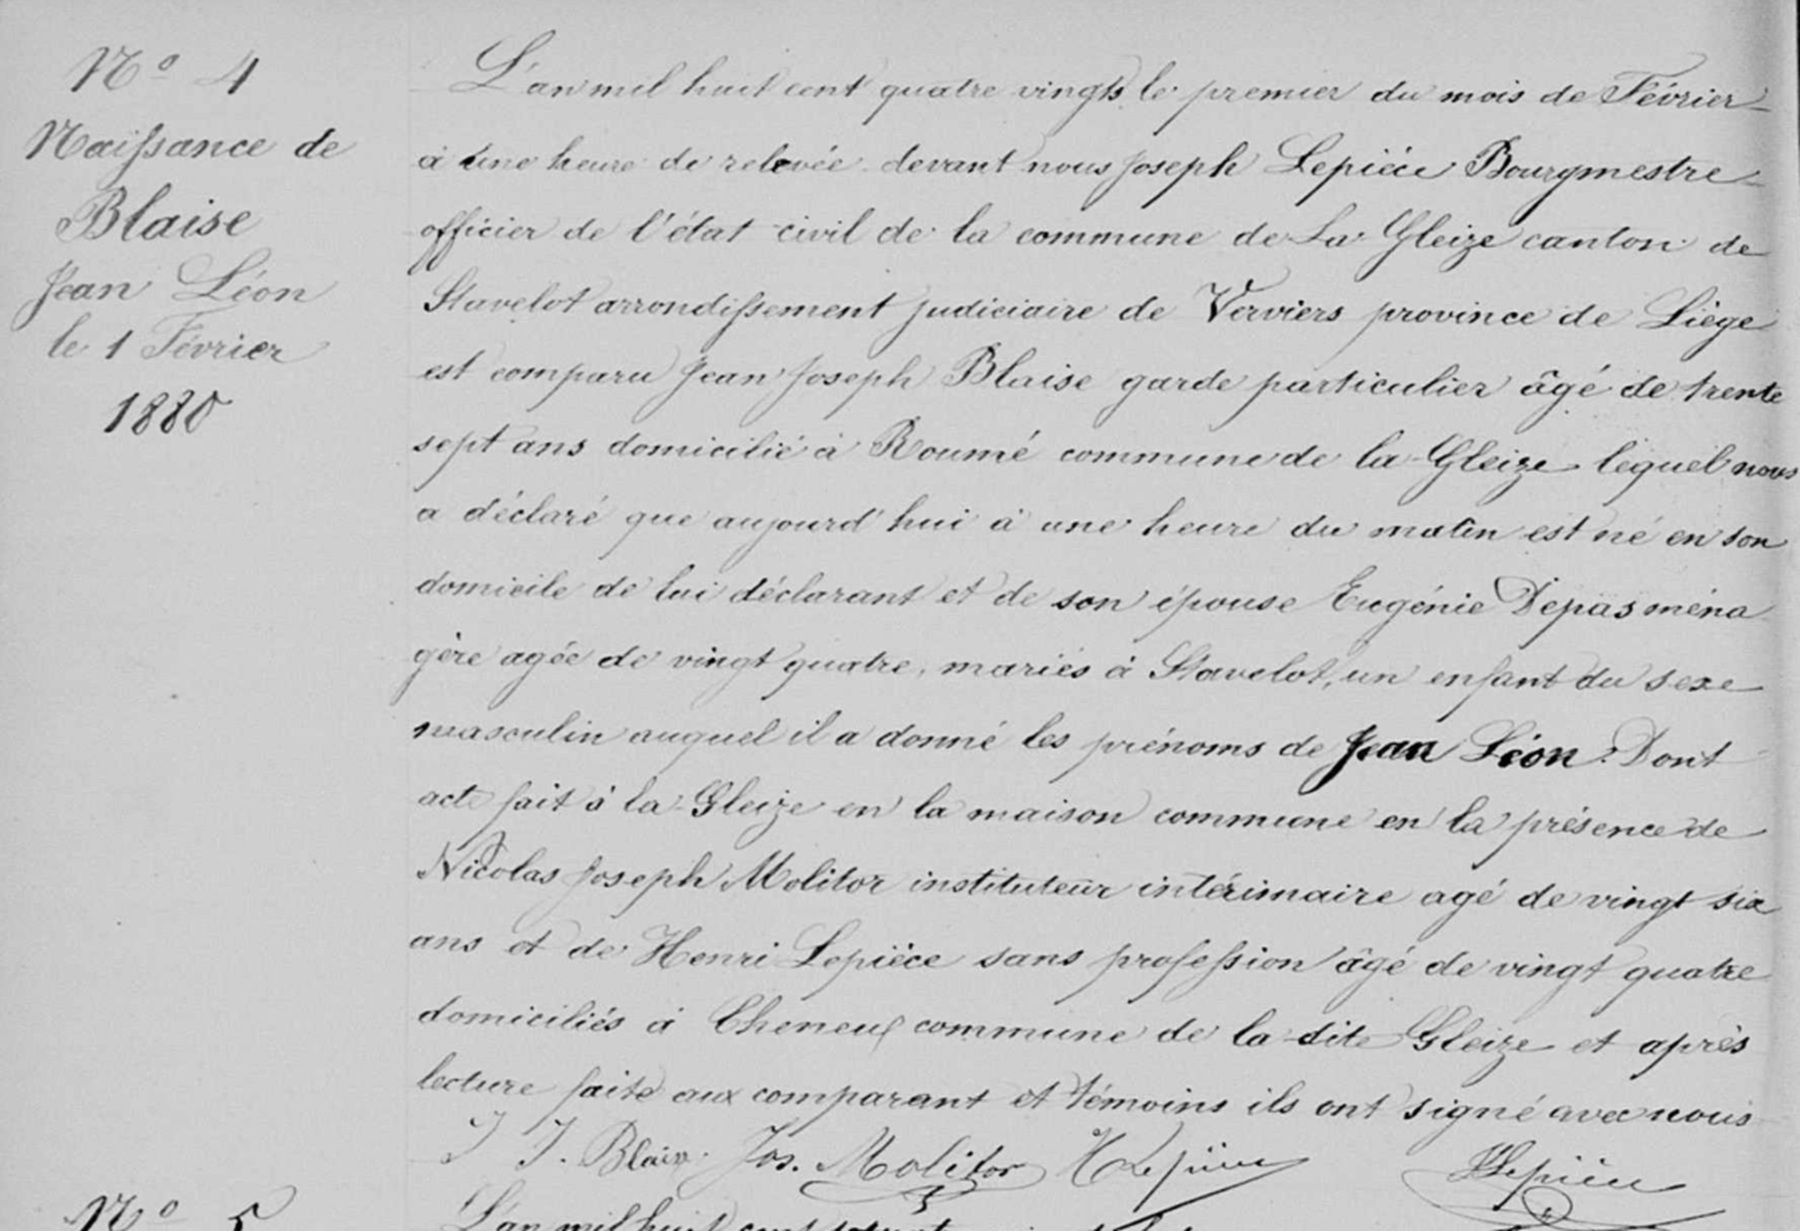 No 4
Naissance de
Blaise
Jean Léon
le 1 Février
1880
L'an mil huit cent quatre vingts le premier du mois de Février
à une heure de relevée devant nous Joseph Lepièce Bourgmestre
officier de l'état civil de la commune de La Gleize canton de
Stavelot arrondissement judiciaire de Verviers province de Liège
est comparu Jean Joseph Blaise garde particulier âgé de trente
sept ans domicilié à Roumé commune de la Gleize lequel nous
a déclaré que aujourd'hui à une heure du matin est né en son
domicile de lui déclarant et de son épouse Eugénie Depas ména
gère agée de vingt quatre, mariés à Stavelot, un enfant du sexe
masculin auquel il a donné les prénoms de Jean Léon. Dont
acte fait à la Gleize en la maison commune en la présence de
Nicolas Joseph Molitor instituteur intérimaire agé de vingt six
ans et de Henri Lepièce sans profession âgé de vingt quatre
domiciliés à Cheneux commune de la dite Gleize et après
lecture faite aux comparant et témoins ils ont signé avec nous
J J. Blaise Jos. Molitor H Lepièce J Lepièce
No 5
L'an mil huit cent